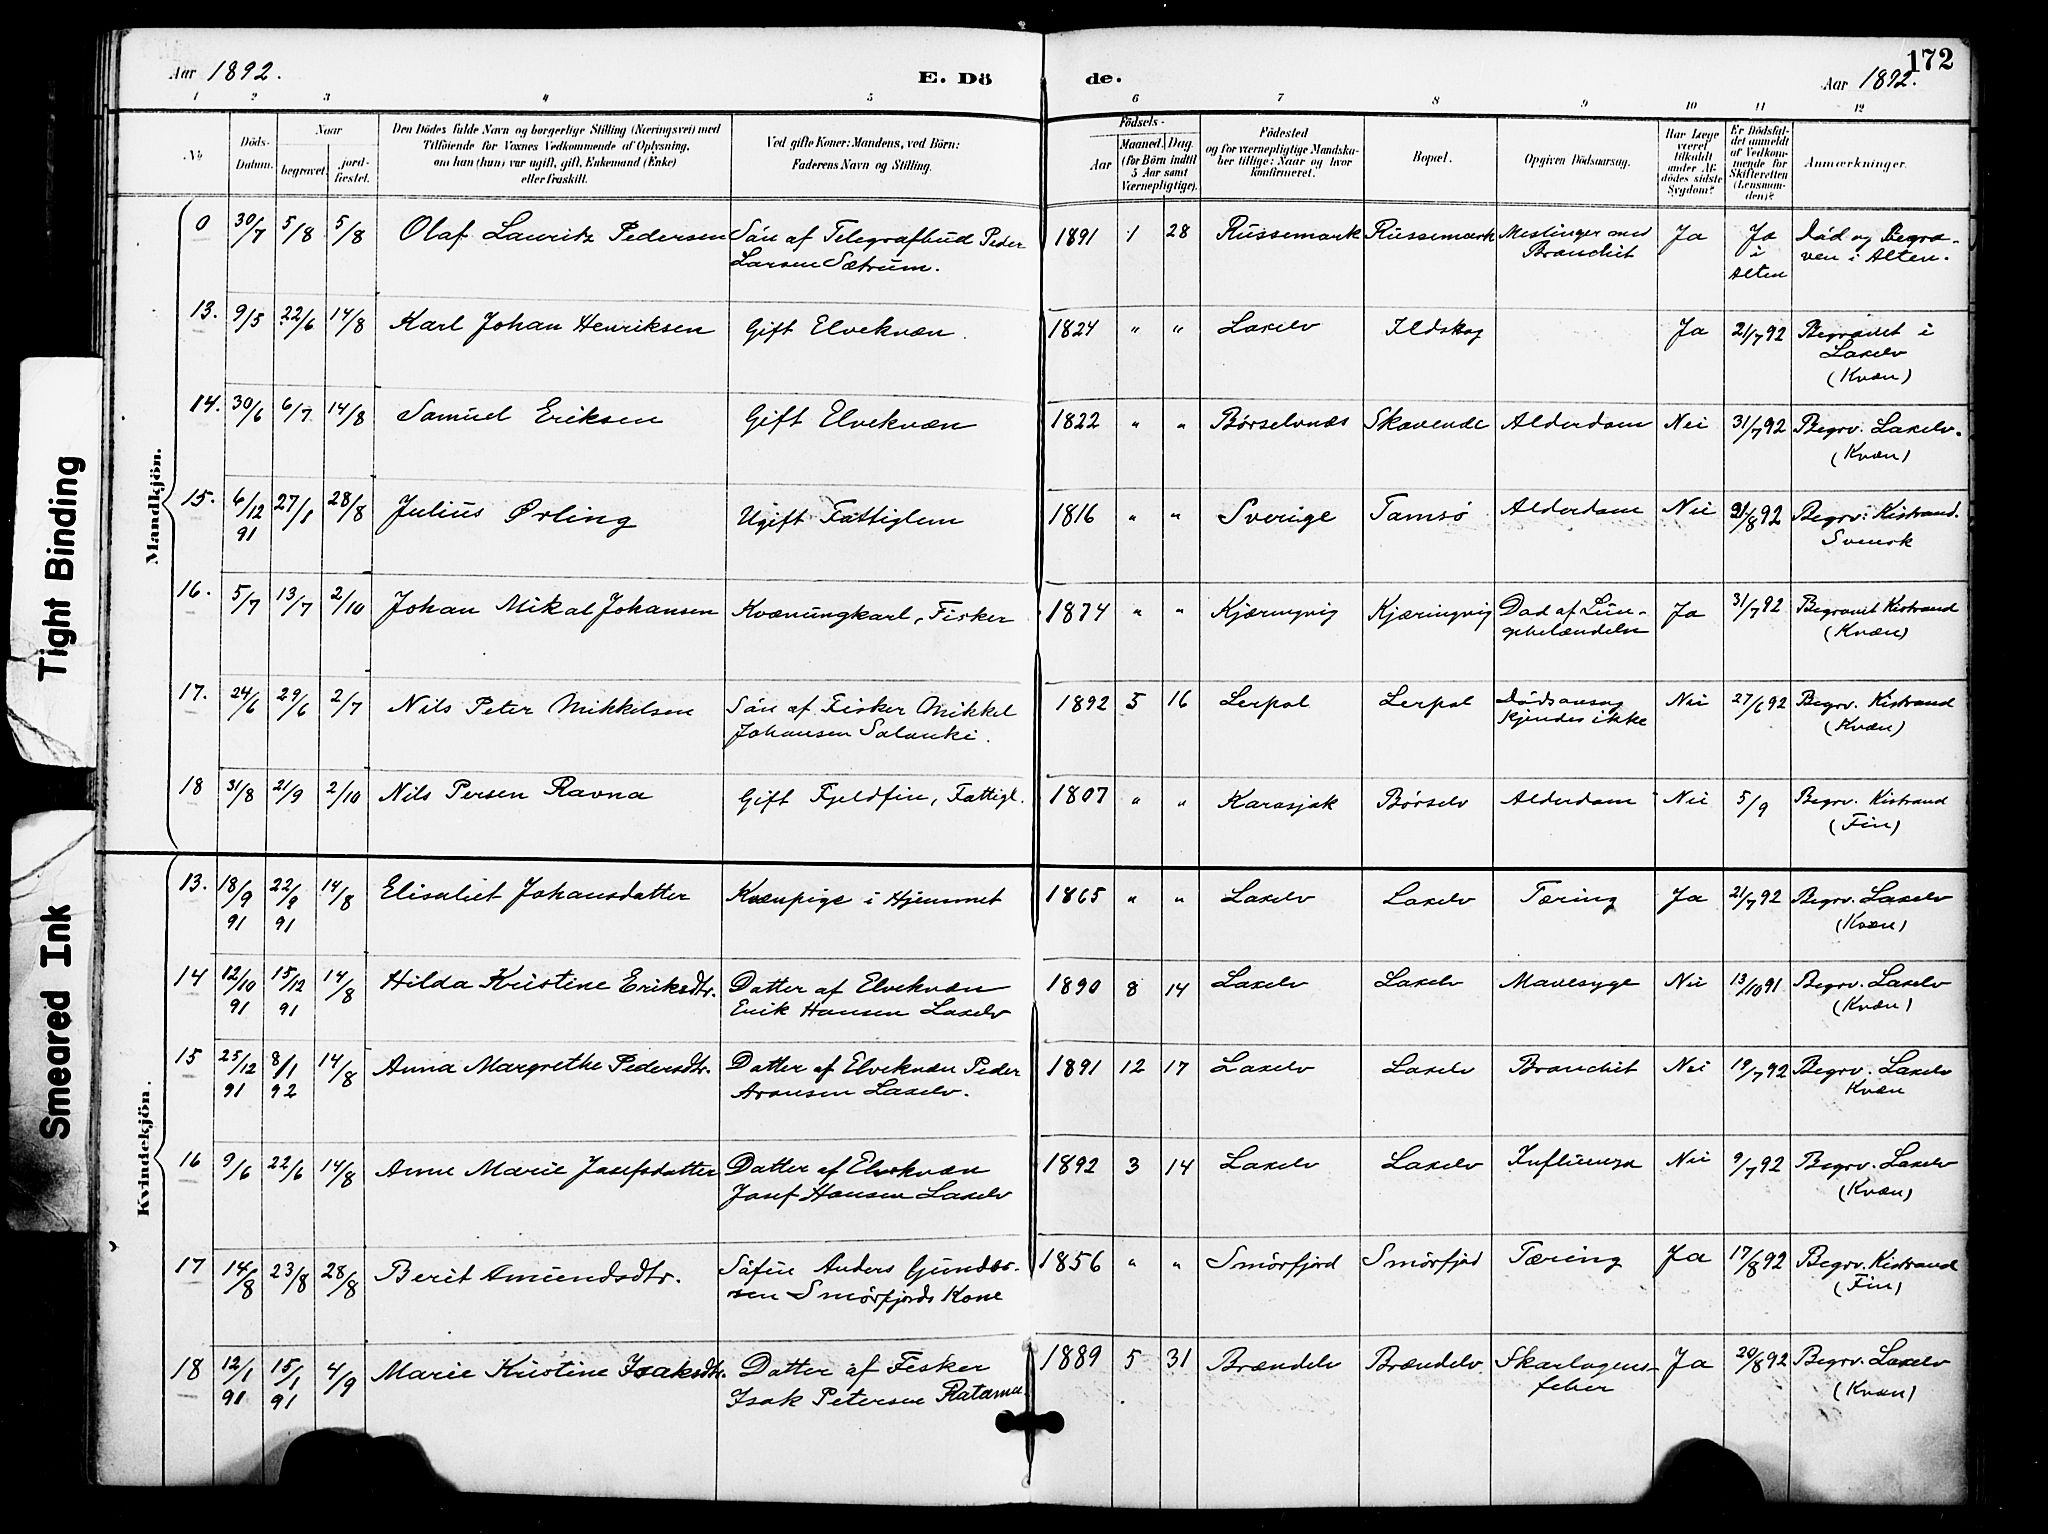 Aar 1892.
E. Dö
de.
172
Aar 1892.
1 2 3 4 5 6 7 8 9 10 11 12
No
Döds-Datum.
Naar
begravet.
jord-fæstet.
Den Dödes fulde Navn og borgerlige Stilling (Næringsvei) med
Tilföiende for Voxnes Vedkommende af Oplysning,
om han (hun) var ugift, gift, Enkemand (Enke)
eller fraskilt.
Ved gifte Koner: Mandens, ved Börn:
Faderens Navn og Stilling.
Födsels-
Aar
Maaned. Dag.
(for Börn indtil
5 Aar samt
Værnepligtige).
Födested
og for værnepligtige Mandska-
ber tillige: Naar og hvor
konfirmeret.
Bopæl.
Opgiven Dödsaarsag.
Har Læge
været
tilkaldt
under Af-
dödes sidste
Sygdom?
Er Dödsfal-
det anmeldt
af Vedkom-
mende for
Skifteretten
(Lensman-
den)?
Anmærkninger.
Mandkjön.
0 30/7 5/8 5/8 Olaf Lauritz Pedersen Sön af Telegrafbud Peder
Larsen Sætrum.
1891 1 28 Russemark Russemark Meslinger med
Bronchit
Ja Ja
i
Alten
Död og Begra-
ven i Alten.
13. 9/5 22/6 14/8 Karl Johan Henriksen Gift Elvekvæn.
1824 " " Laxelv Ildskog Ja 21/7 92 Begravet i
Laxelv
(Kvæn)
14. 30/6 6/7 14/8 Samuel Eriksen Gift Elvekvæn
1822 " " Børselvnæs Skavende Alderdom Nei 31/7 92 Begrv. Laxelv.
(Kvæn)
15. 6/12
91
27/1 28/8 Julius Ørling Ugift Fattiglem
1816 " " Sverige Tamsø Alderdom Nei 21/8 92 Begrv: Kistrand.
Svensk
16. 5/7 13/7 2/10 Johan Mikal Johansen Kvænungkarl, Fisker
1874 " " Kjæringvig Kjæringvig Död af Lun-
gebetændelse
Ja 31/7 92 Begravet Kistrand
(Kvæn)
17. 24/6 29/6 2/7 Nils Peter Mikkelsen Sön af Fisker Mikkel
Johansen Salanki.
1892 5 16 Lerpol Lerpol Dödsaarsag
kjendes ikke
Nei 27/6 92 Begrv. Kistrand
(Kvæn)
18 31/8 21/9 2/10 Nils Persen Ravna Gift Fjeldfin, Fattigl.
1807 " " Karasjok Børselv Alderdom Nei 5/9 Begrv. Kistrand
(Fin)
Kvindekjön.
13. 18/9
91
22/9
91
14/8 Elisabet Johansdatter Kvænpige i Hjemmet
1865 " " Laxelv Laxelv Tæring Ja 21/7 92 Begrv. Laxelv
(Kvæn)
14 12/10
91
15/12
91
14/8 Hilda Kristine Eriksdtr. Datter af Elvekvæn
Erik Hansen Laxelv
1890 8 14 Laxelv Laxelv Mavesyge Nei 13/10 91 Begrv. Laxelv
(Kvæn)
15 25/12
91
8/1
92
14/8 Anna Margrethe Pedersdtr. Datter af Elvekvæn Peder
Aronsen Laxelv.
1891 12 17 Laxelv Laxelv Bronchit Nei 19/7 92 Begrv. Laxelv
Kvæn
16 9/6 22/6 14/8 Anne Marie Josefsdatter Datter af Elvekvæn
Josef Hansen Laxelv
1892 3 14 Laxelv Laxelv Influenza Nei 9/7 92 Begrv. Laxelv
(Kvæn)
17 14/8 23/8 28/8 Berit Amundsdtr. Söfin Anders Gunder-
sen Smörfjords Kone
1856 " " Smörfjord Smörfjod Tæring Ja 17/8 92 Begrv. Kistrand
(Fin)
18 12/1
91
15/1
91
4/9 Marie Kristine Isaksdtr. Datter af Fisker
Isak Petersen
1889 5 31 Brændelv Brændelv Skarlagens-
feber
Ja 20/8 92 Begrv. Laxelv
(Kvæn)
Tight Binding
Smeared Ink